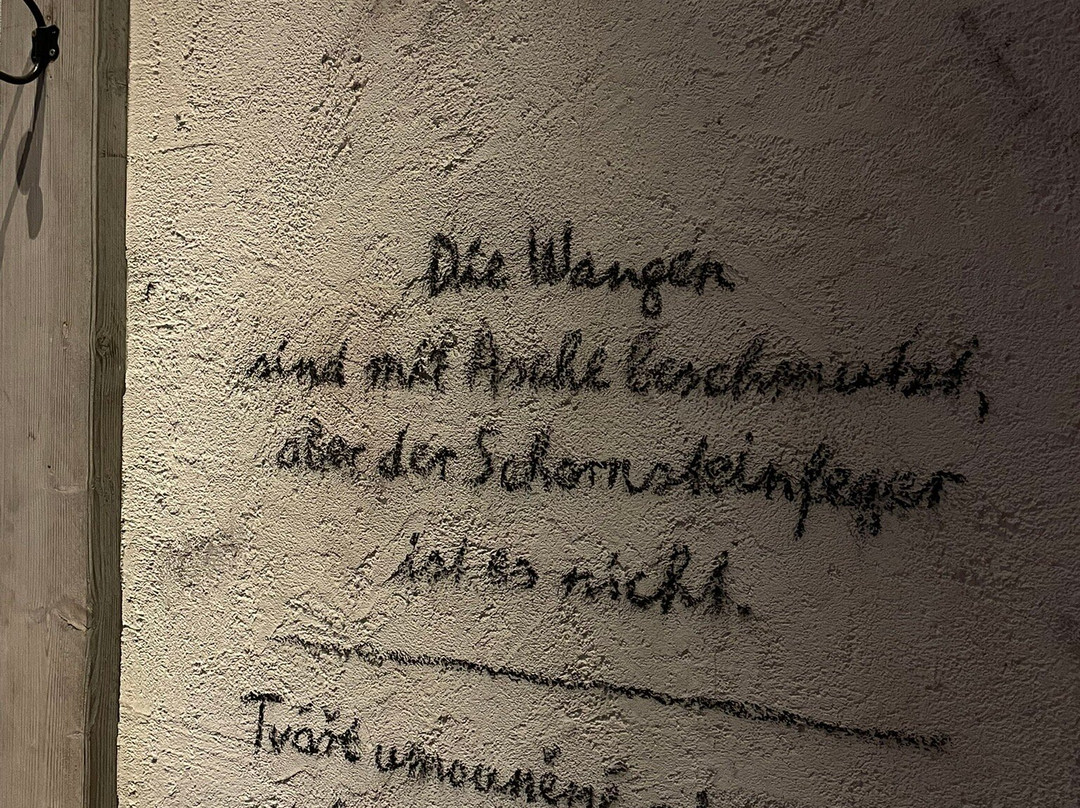 Die Wangen
sind mit Asche beschmutzt,
aber der Schornsteinfeger
ist es nicht.
Tváře umouněné